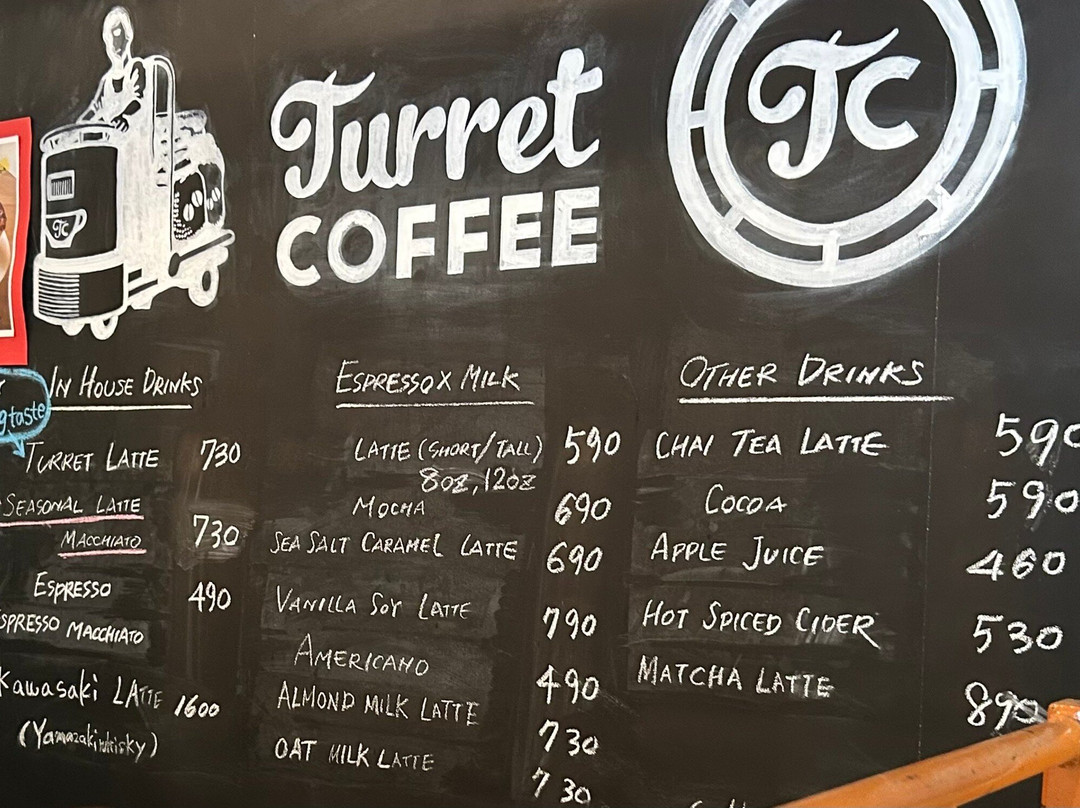 TC
Turret
COFFEE
TC
IN HOUSE DRINKS
taste
TURRET LATTE 730
SEASONAL LATTE
MACCHIATO 730
ESPRESSO 490
ESPRESSO MACCHIATO
Kawasaki LATTE 1600
(Yamazaki whisky)
ESPRESSO X MILK
LATTE (SHORT/TALL) 590
8oz, 12oz
MOCHA 690
SEA SALT CARAMEL LATTE 690
VANILLA SOY LATTE 790
AMERICANO 490
ALMOND MILK LATTE 730
OAT MILK LATTE 730
OTHER DRINKS
CHAI TEA LATTE 590
COCOA 590
APPLE JUICE 460
HOT SPICED CIDER 530
MATCHA LATTE 890